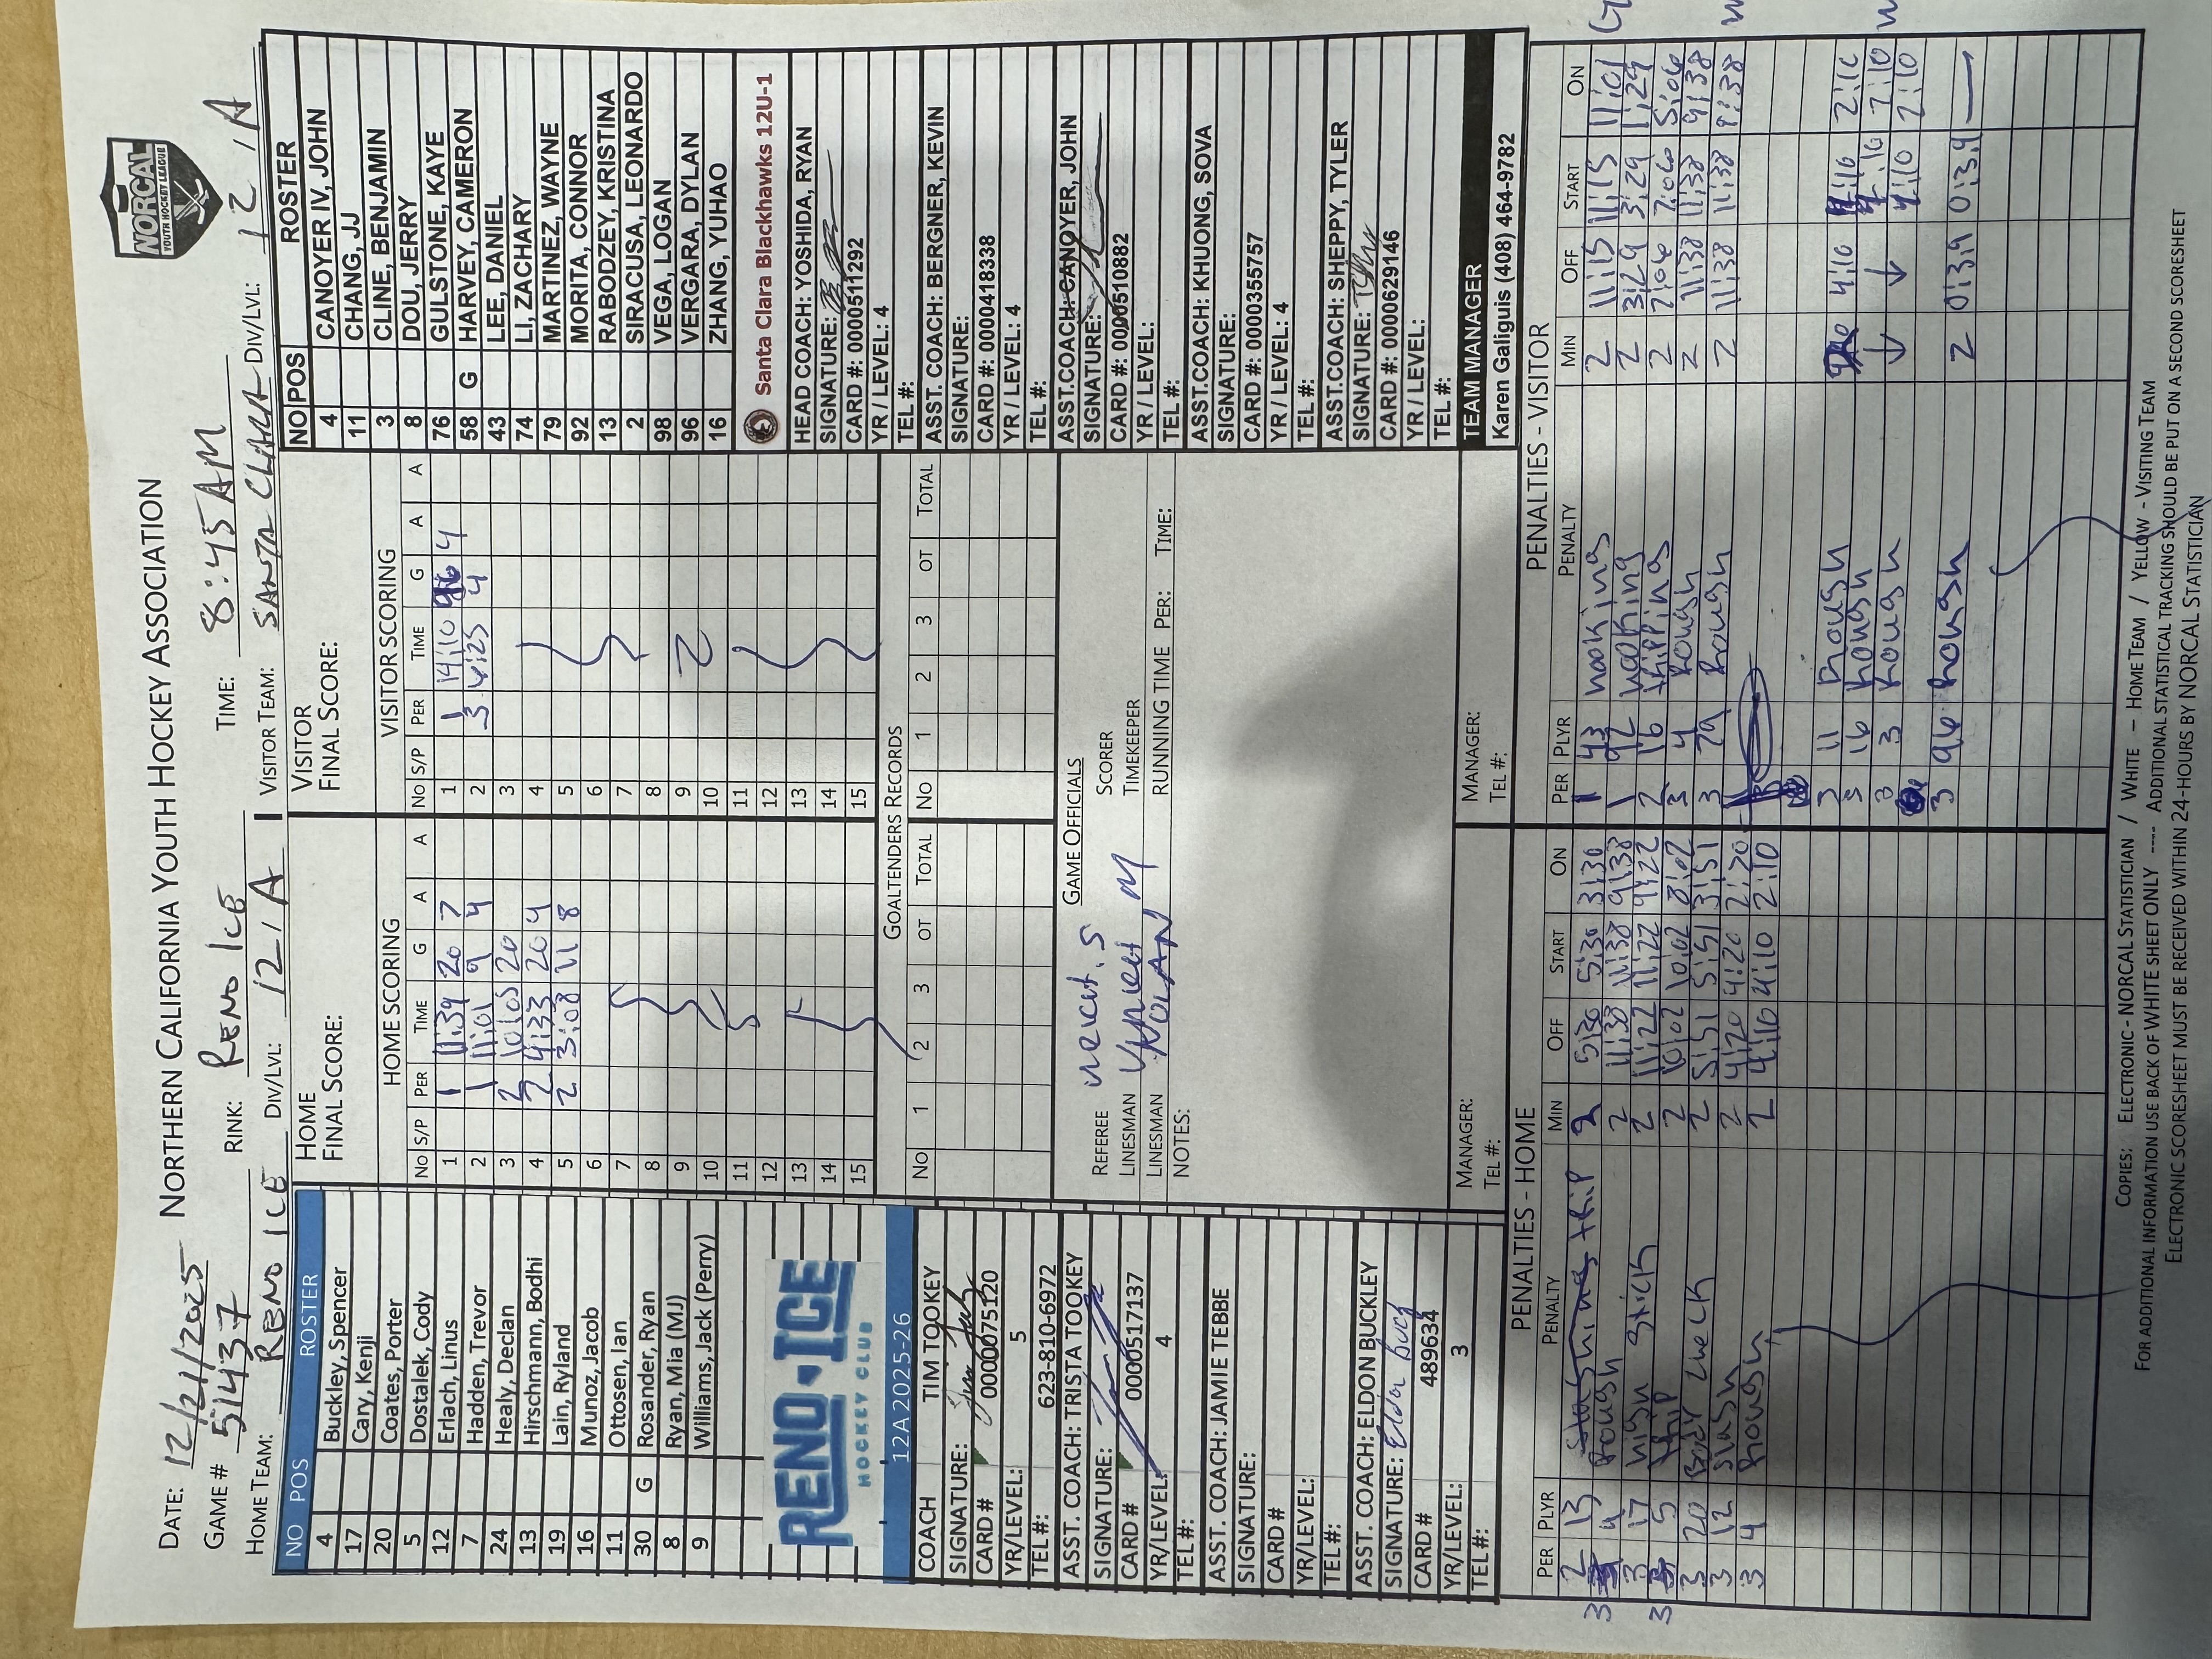 DATE: 12/21/2025 NORTHERN CALIFORNIA YOUTH HOCKEY ASSOCIATION
NORCAL
YOUTH HOCKEY LEAGUE
GAME # 51437 RINK: RENO ICE TIME: 8:45 AM
HOME TEAM: RENO ICE DIV/LVL: 12 / A VISITOR TEAM: SANTA CLARA DIV/LVL: 12 / A
NO POS ROSTER
4 Buckley, Spencer
17 Cary, Kenji
20 Coates, Porter
5 Dostalek, Cody
12 Erlach, Linus
7 Hadden, Trevor
24 Healy, Declan
13 Hirschmann, Bodhi
19 Lain, Ryland
16 Munoz, Jacob
11 Ottosen, Ian
30 G Rosander, Ryan
8 Ryan, Mia (MJ)
9 Williams, Jack (Perry)
RENO ICE
HOCKEY CLUB
12A 2025-26
COACH TIM TOOKEY
SIGNATURE:
CARD # 0000075120
YR/LEVEL: 5
TEL#: 623-810-6972
ASST. COACH: TRISTA TOOKEY
SIGNATURE:
CARD # 0000517137
YR/LEVEL: 4
TEL#:
ASST. COACH: JAMIE TEBBE
SIGNATURE:
CARD #
YR/LEVEL:
TEL#:
ASST. COACH: ELDON BUCKLEY
SIGNATURE: Eldon Buck
CARD # 489634
YR/LEVEL: 3
TEL#:
HOME
FINAL SCORE:
HOME SCORING
No S/P PER TIME G A A
1 1 11:39 20 7
2 1 11:01 9 4
3 2 10:05 20
4 2 4:33 20 4
5 2 3:08 11 8
6
7
8
9
10
11
12
13
14
15
VISITOR
FINAL SCORE:
VISITOR SCORING
No S/P PER TIME G A A
1 1 14:10 96 4
2 3 4:23 4
3
4
5
6
7
8
9
10
11
12
13
14
15
GOALTENDERS RECORDS
No 1 2 3 OT TOTAL No 1 2 3 OT TOTAL
GAME OFFICIALS
REFEREE SCORER
LINESMAN TIMEKEEPER
LINESMAN NOLAN RUNNING TIME PER: TIME:
NOTES:
MANAGER:
TEL #:
MANAGER:
TEL #:
NO POS ROSTER
4 CANOYER IV, JOHN
11 CHANG, JJ
3 CLINE, BENJAMIN
8 DOU, JERRY
76 GULSTONE, KAYE
58 G HARVEY, CAMERON
43 LEE, DANIEL
74 LI, ZACHARY
79 MARTINEZ, WAYNE
92 MORITA, CONNOR
13 RABODZEY, KRISTINA
2 SIRACUSA, LEONARDO
98 VEGA, LOGAN
96 VERGARA, DYLAN
16 ZHANG, YUHAO
Santa Clara Blackhawks 12U-1
HEAD COACH: YOSHIDA, RYAN
SIGNATURE:
CARD #: 0000511292
YR / LEVEL: 4
TEL #:
ASST. COACH: BERGNER, KEVIN
SIGNATURE:
CARD #: 0000418338
YR / LEVEL: 4
TEL #:
ASST.COACH: CANOYER, JOHN
SIGNATURE:
CARD #: 0000510882
YR / LEVEL:
TEL #:
ASST.COACH: KHUONG, SOVA
SIGNATURE:
CARD #: 0000355757
YR / LEVEL: 4
TEL #:
ASST.COACH: SHEPPY, TYLER
SIGNATURE:
CARD #: 0000629146
YR / LEVEL:
TEL #:
TEAM MANAGER
Karen Galiguis (408) 464-9782
PENALTIES - HOME
PER PLYR PENALTY MIN OFF START ON
2 13 Slashing trip 2 5:30 5:30 3:30
3 4 Rough 2 11:38 11:38 9:38
3 17 high Stick 2 11:22 11:22 9:22
3 5 trip 2 10:02 10:02 8:02
3 20 Body Check 2 5:51 5:51 3:51
3 12 Slash 2 4:20 4:20 2:20
3 4 Rough 2 4:10 4:10 2:10
PENALTIES - VISITOR
PER PLYR PENALTY MIN OFF START ON
1 43 hooking 2 11:15 11:15 11:01
1 92 hooking 2 3:29 3:29 1:29
2 16 tripping 2 7:06 7:06 5:06
3 4 Rough 2 11:38 11:38 9:38
3 79 Rough 2 11:38 11:38 9:38
3 11 Rough 4:10 4:10 2:10
3 16 Rough 4:10 2:10
3 3 Rough 4:10 2:10
3 96 Rough 2 0:39 0:39 —
COPIES: ELECTRONIC - NORCAL STATISTICIAN / WHITE – HOME TEAM / YELLOW - VISITING TEAM
FOR ADDITIONAL INFORMATION USE BACK OF WHITE SHEET ONLY ---- ADDITIONAL STATISTICAL TRACKING SHOULD BE PUT ON A SECOND SCORESHEET
ELECTRONIC SCORESHEET MUST BE RECEIVED WITHIN 24-HOURS BY NORCAL STATISTICIAN